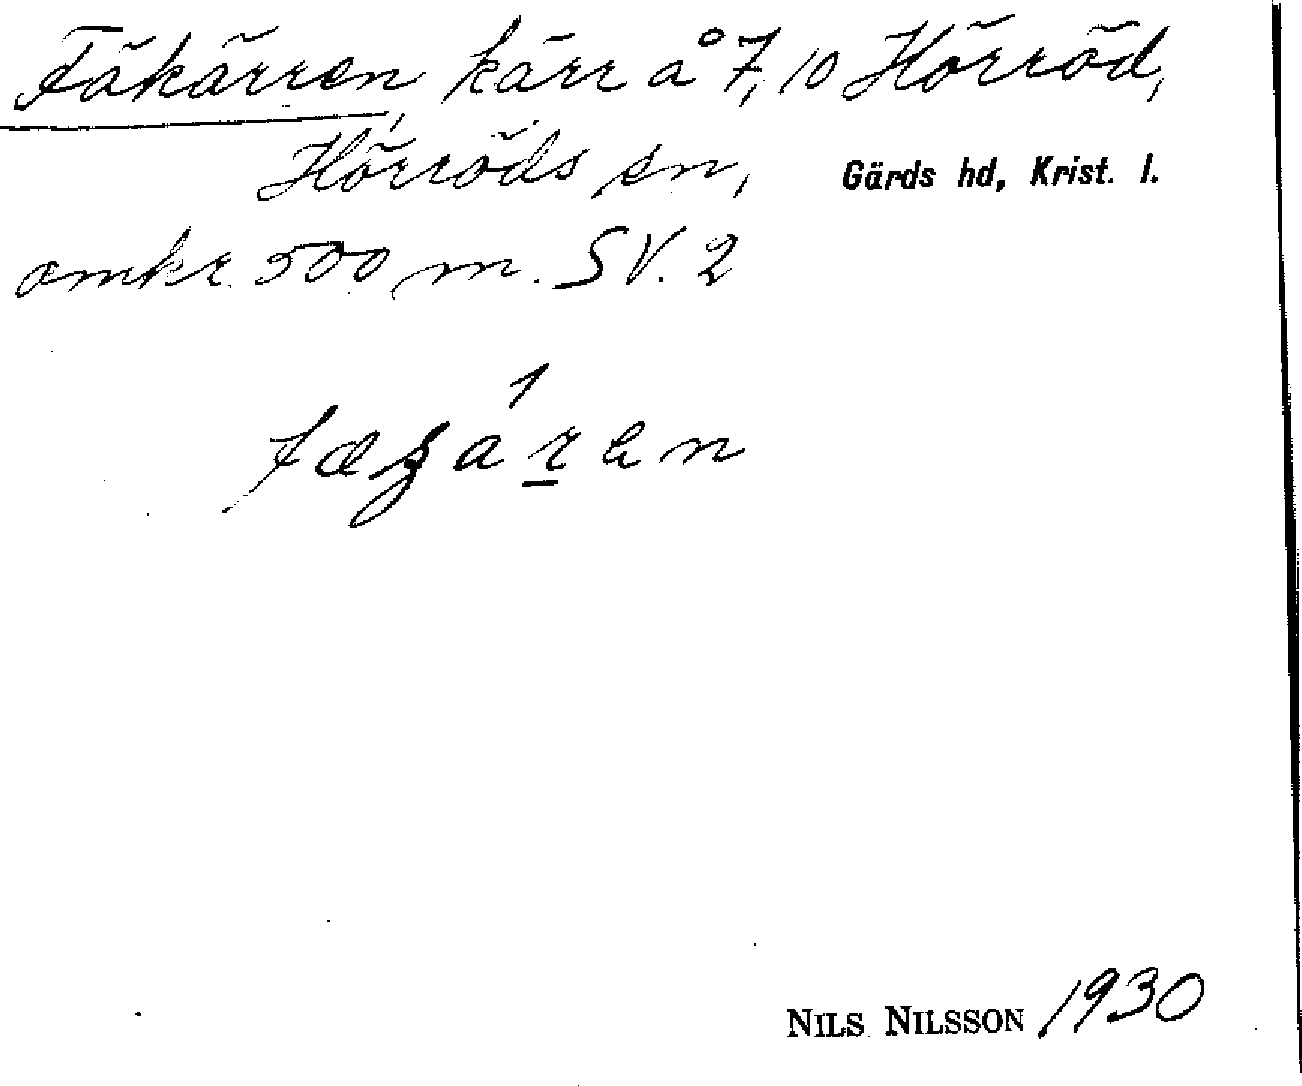 Fäkärren, kärr å 7, 10 Hörröd,
Hörröds sn, Gärds hd, Krist. l.
omkr. 500 m. SV. 2
NILS NILSSON 1930